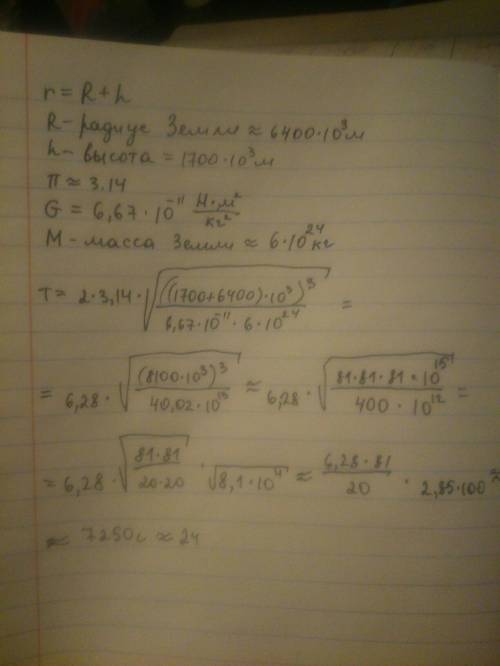 r = R + h
R - радиус Земли ≈ 6400·10³м
h - высота = 1700·10³м
π ≈ 3.14
G = 6,67·10⁻¹¹ Н·м²/кг²
M - масса Земли ≈ 6·10²⁴кг
T = 2·3,14·√(((1700+6400)·10³)³/(6,67·10⁻¹¹·6·10²⁴)) =
= 6,28·√((8100·10³)³/(40,02·10¹³)) ≈ 6,28·√((81·81·81·10¹⁵)/(400·10¹²)) =
= 6,28·√((81·81)/(20·20))·√(8,1·10⁴) ≈ (6,28·81)/20 · 2,85·100 ≈
≈ 7250с ≈ 2ч